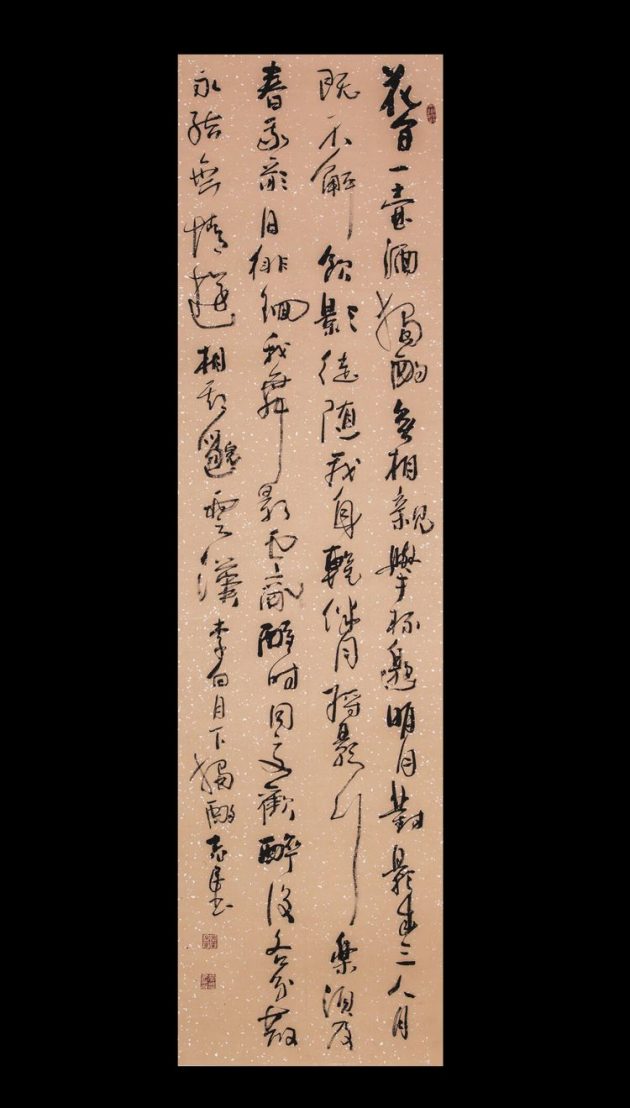 花間一壺酒獨酌無相親舉杯邀明月對影成三人月
既不解飲影徒隨我身暫伴月將影行樂須及
春我歌月徘徊我舞影零亂醒時同交歡醉後各分散
永結無情遊相期邈雲漢李白月下獨酌